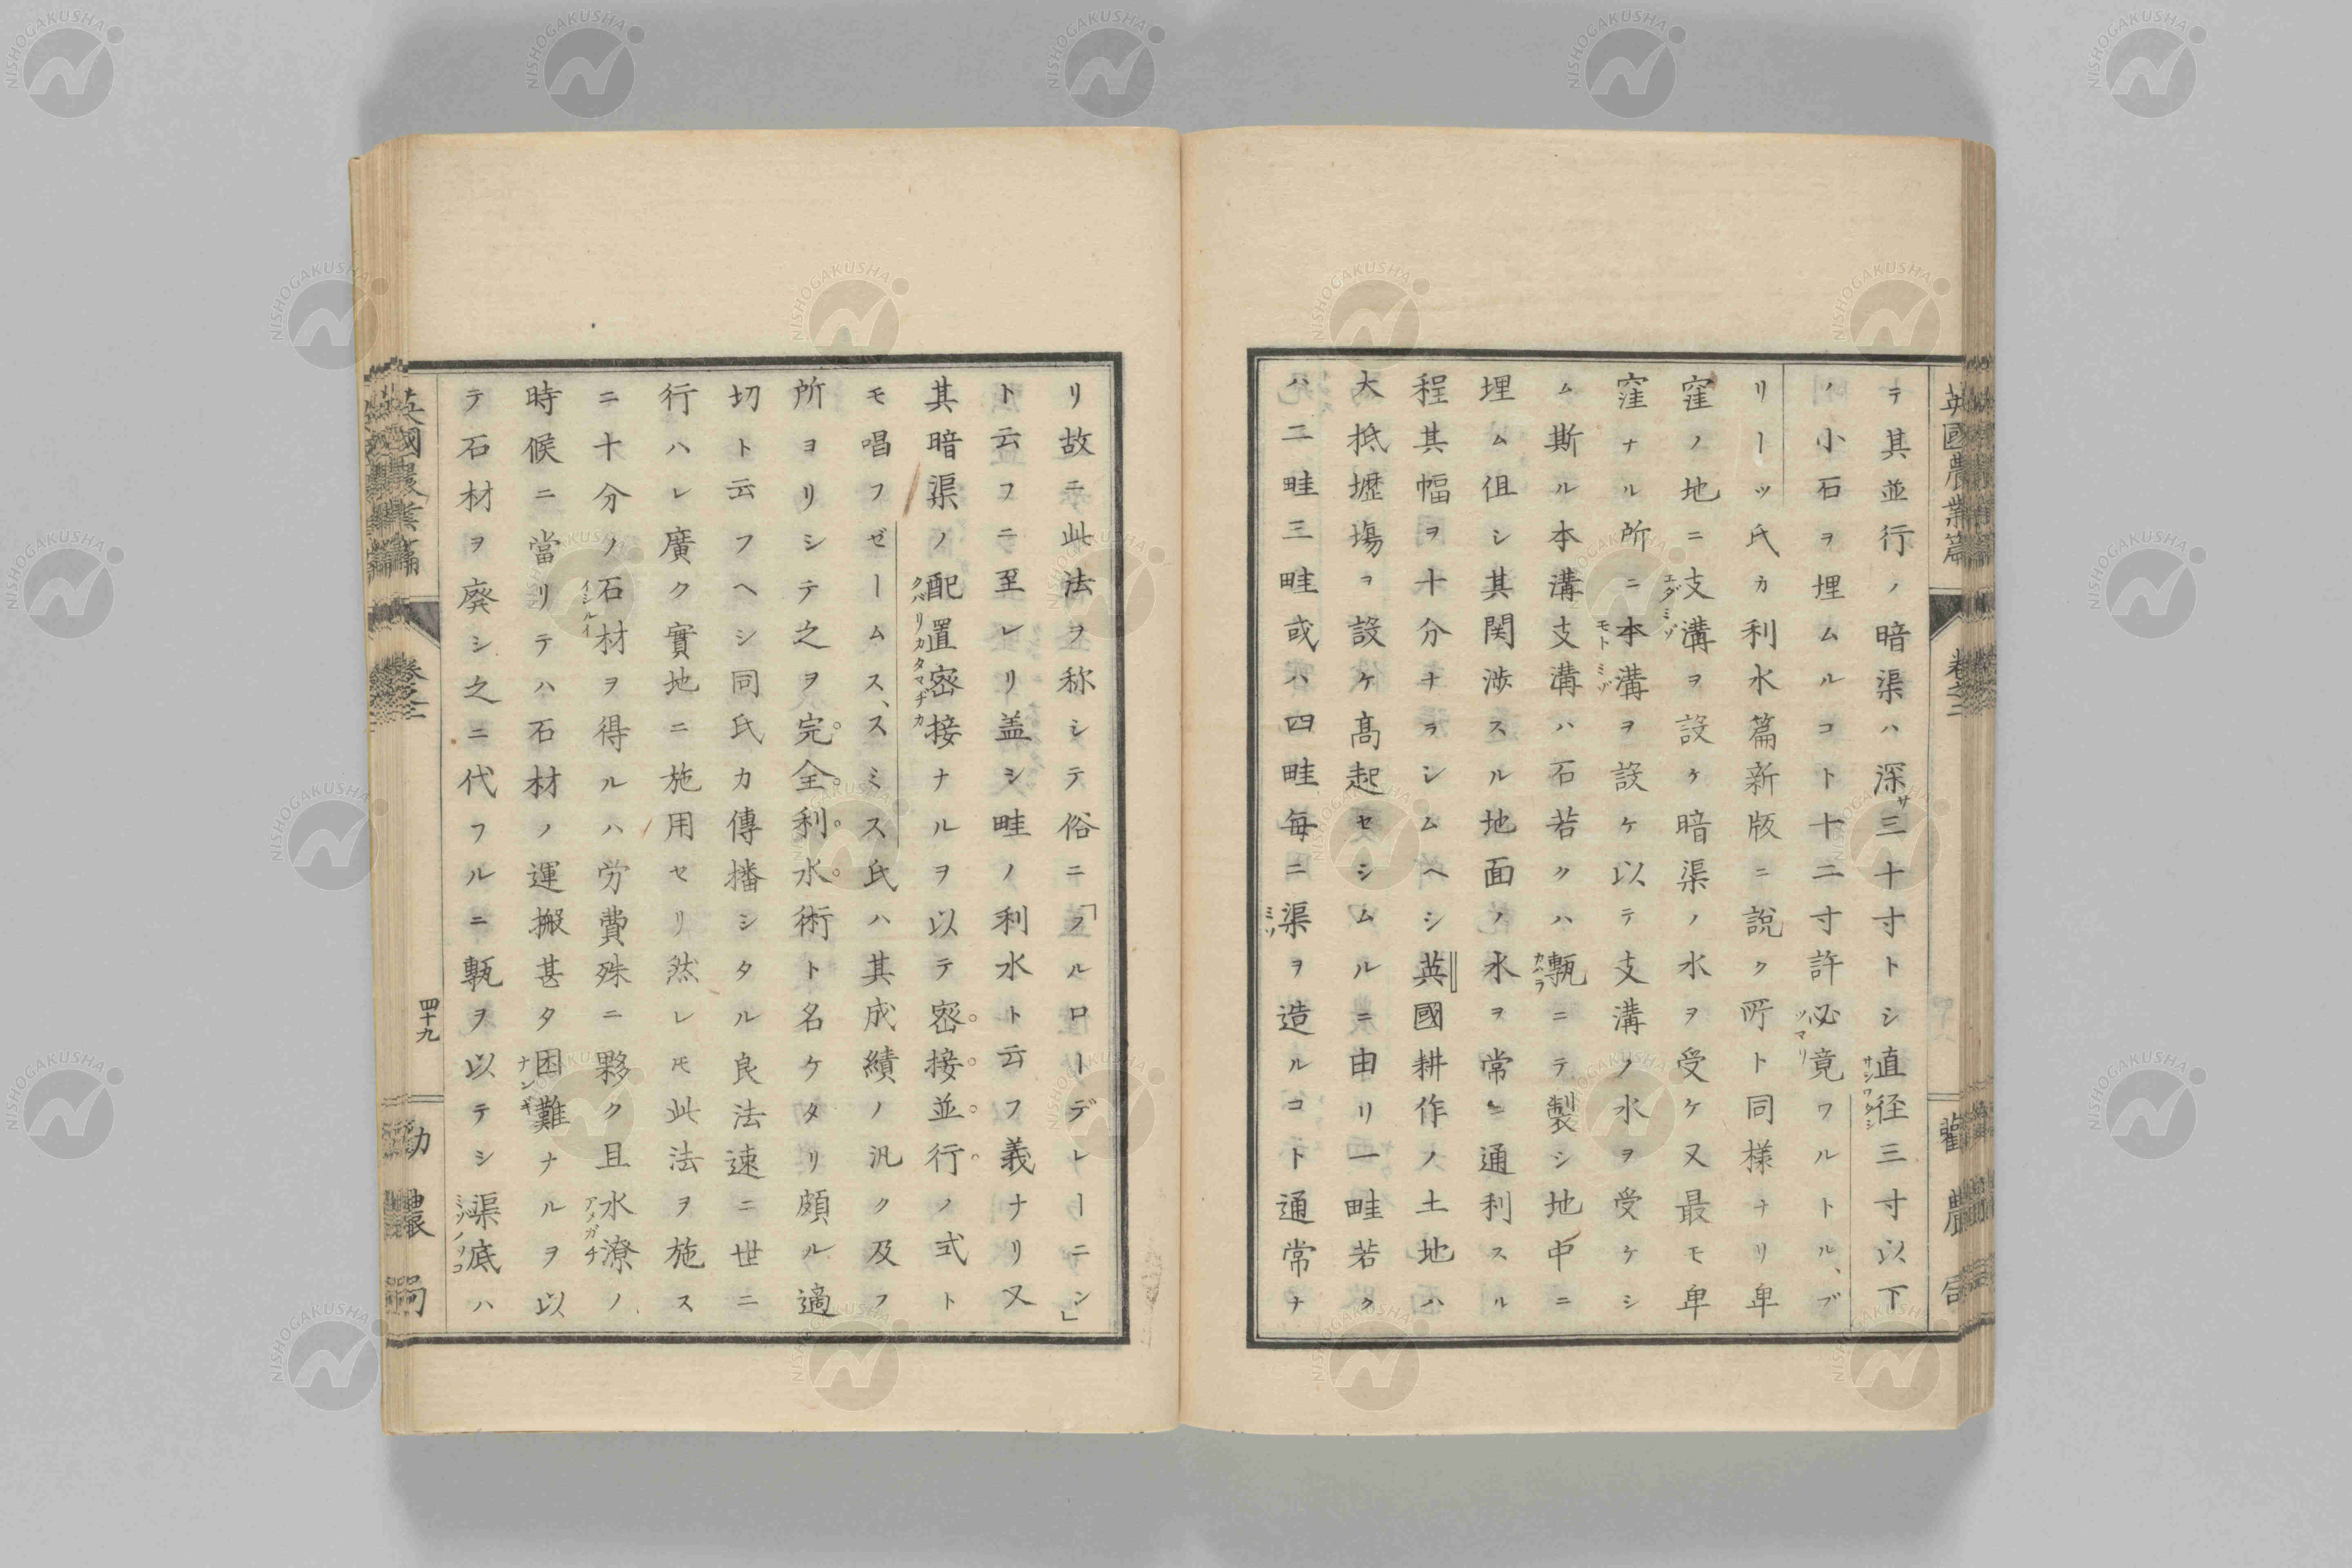 英國農業篇 卷之二 勸農局
テ其並行ノ暗渠ハ深サ三十寸トシ直径三寸以下
ノ小石ヲ埋ムルコト十二寸許必竟ワルトル、ブ
リーツ氏カ利水篇新版ニ説ク所ト同様ナリ卑
窪ノ地ニ支溝ヲ設ケ暗渠ノ水ヲ受ケ又最モ卑
窪ナル所ニ本溝ヲ設ケ以テ支溝ノ水ヲ受ケシ
ム斯ル本溝支溝ハ石若クハ甎ニテ製シ地中ニ
埋ム但シ其関渉スル地面ノ水ヲ常ニ通利スル
程其幅ヲ十分ナラシムヘシ英國耕作ノ土地ハ
大抵壢塲ヲ設ケ高起セシムルニ由リ一畦若ク
ハ二畦三畦或ハ四畦毎ニ渠ヲ造ルコト通常ナ
リ故ニ此法ヲ称シテ俗ニ「フルローデレーニン」
ト云フニ至レリ盖シ畦ノ利水ト云フ義ナリ又
其暗渠ノ配置密接ナルヲ以テ密接並行ノ式ト
モ唱フゼームス、スミス氏ハ其成績ノ汎ク及フ
所ヨリシテ之ヲ完全利水術ト名ケタリ頗ル適
切ト云フヘシ同氏カ傳播シタル良法速ニ世ニ
行ハレ廣ク實地ニ施用セリ然レモ此法ヲ施ス
ニ十分ノ石材ヲ得ルハ労費殊ニ夥ク且水潦ノ
時候ニ當リテハ石材ノ運搬甚タ困難ナルヲ以
テ石材ヲ廃シ之ニ代フルニ甎ヲ以テシ渠底ハ
英國農業篇 卷之二 四十九 勸農局